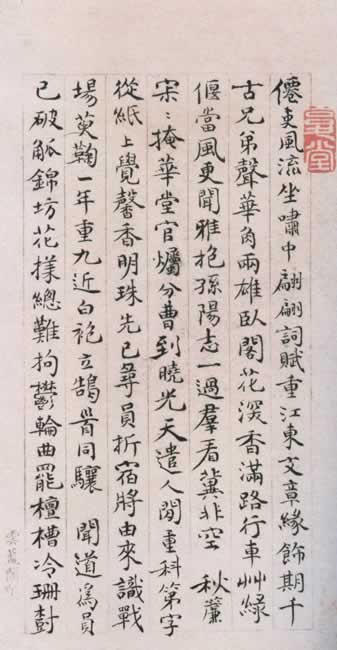 僊吏風流坐嘯中翩翩詞賦重江東文章緣飾期千
古兄弟聲華角兩雄臥閣花深香滿路行車艸綠
偃當風更聞雅抱孫陽志一過羣看冀北空 秋簾
寂〻掩華堂官燭分曹到曉光天遣人間重科第字
從紙上覺馨香明珠先已尋員折宿將由來識戰
場黄鞠一年重九近白袍立鵠胥同驤 聞道爲員
已破觚錦坊花樣總難拘鬱輪曲罷檀槽冷珊尌